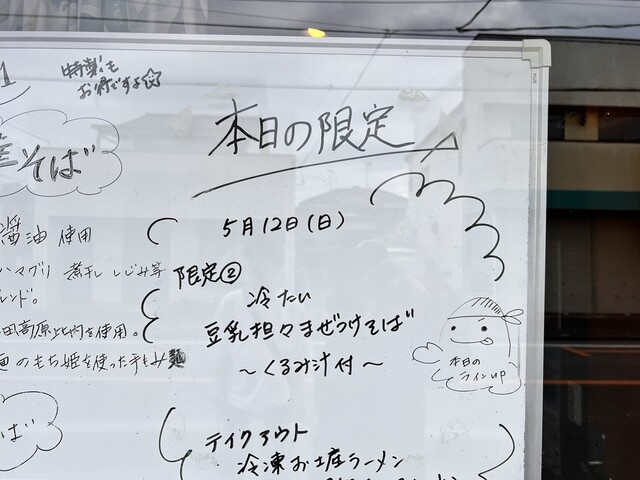 特製!も
お得ですよ☆
そば
醤油 使用
ハマグリ 煮干 しじみ等
レンド。
田高原比内を使用。
のもち姫を使った手もみ麺
ば
本日の限定
5月12日(日)
限定②
冷たい
豆乳担々まぜつけそば
～くるみ汁付～
本日の
ラインUP
テイクアウト
冷凍お土産ラーメン